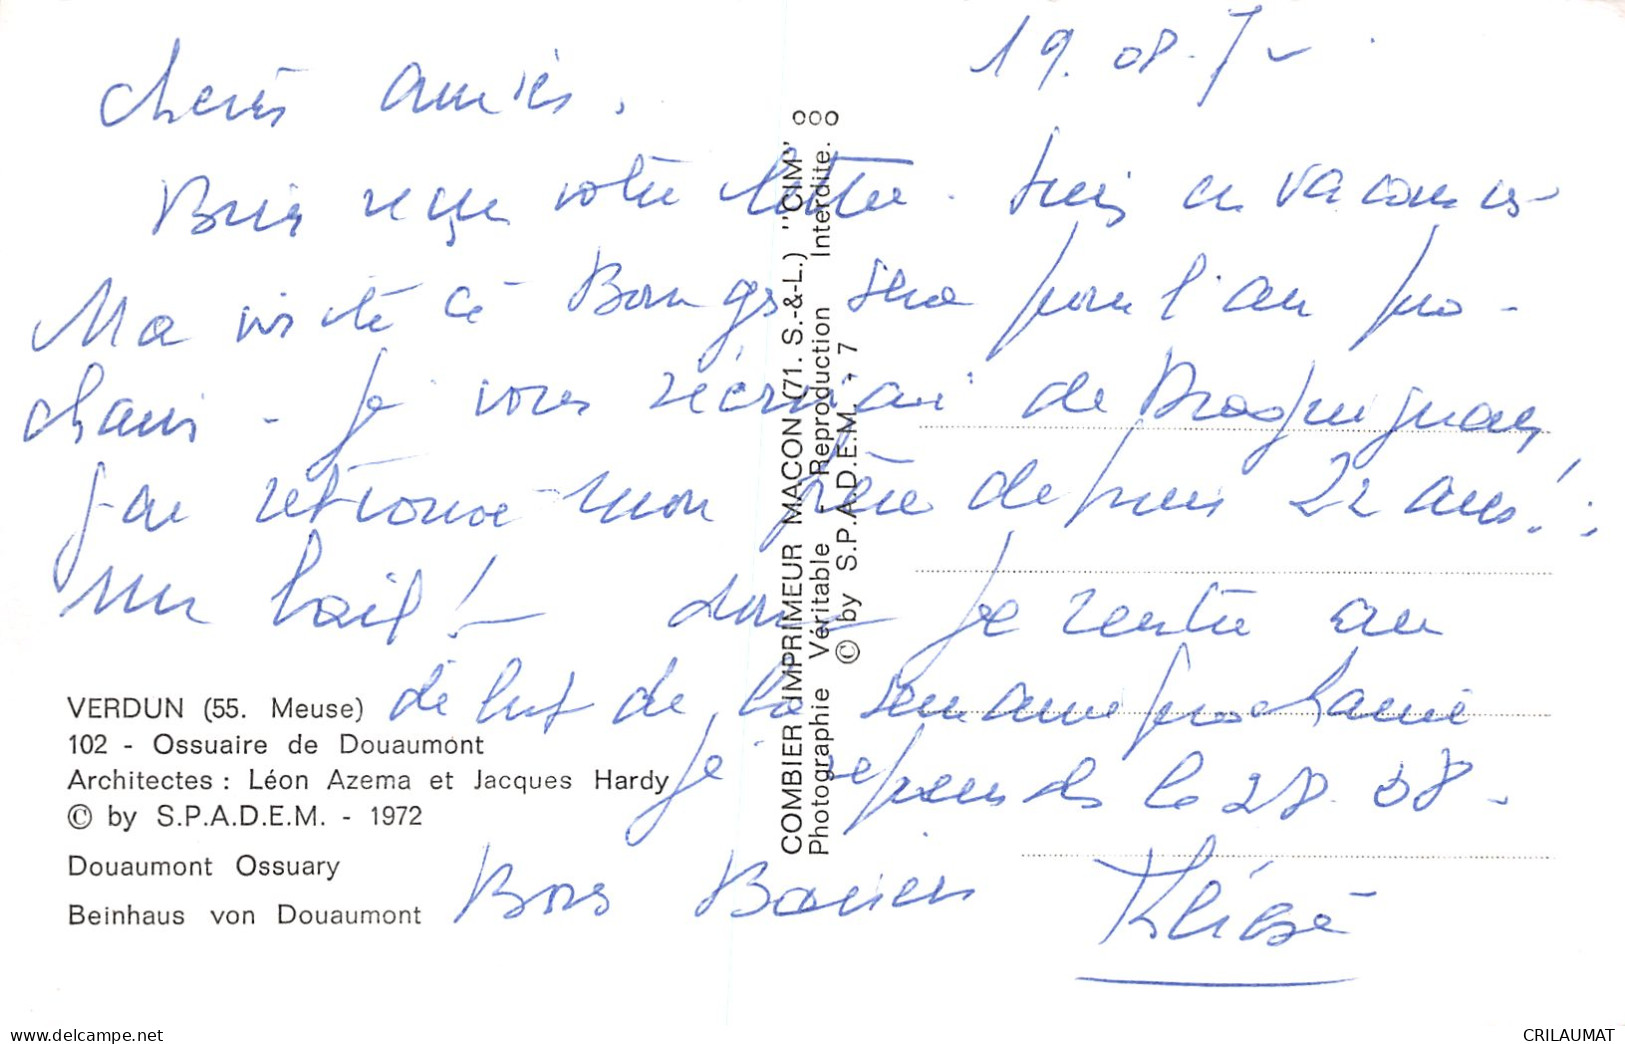 19.08.7
chers amies.
Bien reçu votre lettre. Suis en vacances
Ma visite à Bourges sera pour l'an pro-
chain - Je vous récrirai de Draguignan
J'ai retrouvé mon père depuis 22 ans!
un bail! donc je rentre au
début de la semaine prochaine
je reprends le 28.08-
Bons Baisers
VERDUN (55. Meuse)
102 - Ossuaire de Douaumont
Architectes : Léon Azema et Jacques Hardy
© by S.P.A.D.E.M. - 1972
Douaumont Ossuary
Beinhaus von Douaumont
COMBIER IMPRIMEUR MACON (71. S.-&-L.) ''CIM''
Photographie Véritable - Reproduction Interdite.
© by S.P.A.D.E.M. - 7
www.delcampe.net
CRILAUMAT